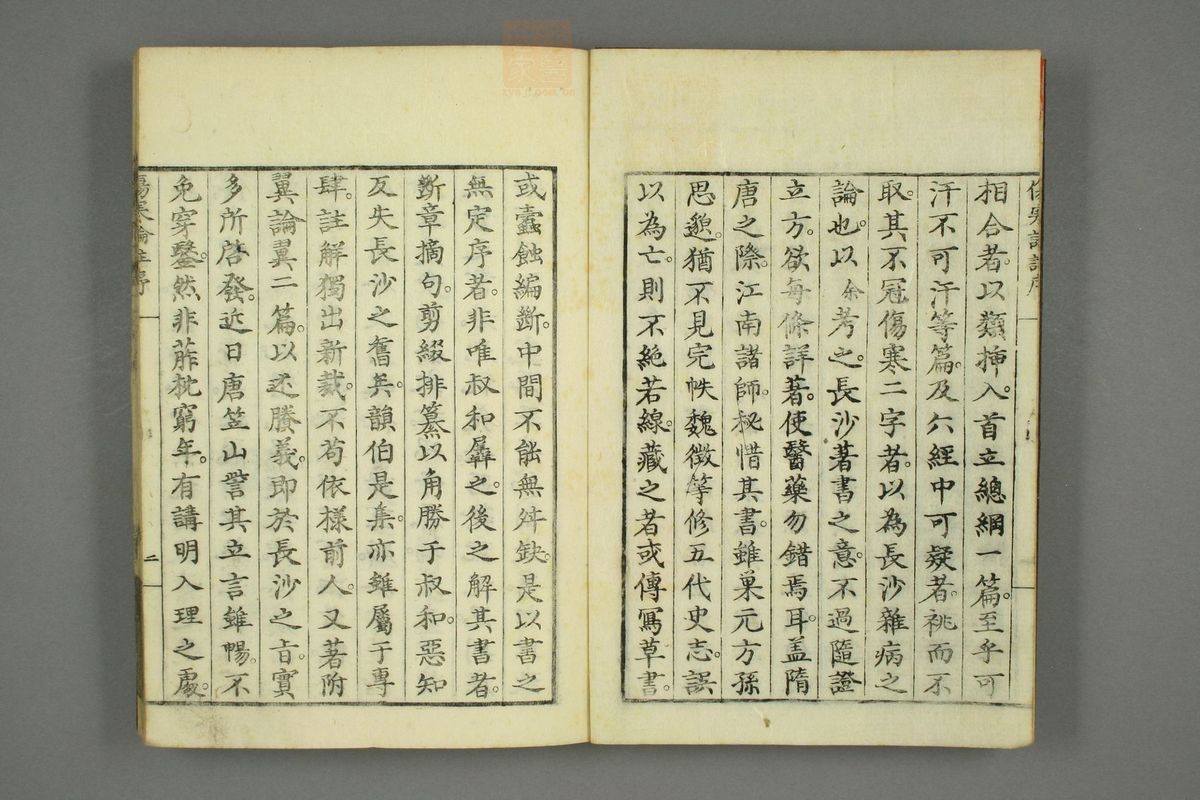 相合者。以類揷入。首立總綱一篇。至乎可
汗不可汗等篇。及六經中可疑者。祧而不
取。其不冠傷寒二字者。以為長沙雜病之
論也。以余考之。長沙著書之意。不過隨證
立方。欲每條詳著。使醫藥勿錯焉耳。盖隋
唐之際。江南諸師。秘惜其書。雖巢元方孫
思邈。猶不見完帙。魏徵等修五代史志。誤
以為亡。則不絶若線。藏之者或傳寫草書。
或蠹蝕編斷。中間不能無舛缺。是以書之
無定序者。非唯叔和羼之。後之解其書者。
斷章摘句。剪綴排纂。以角勝于叔和。惡知
反失長沙之舊矣。韻伯是集。亦雖屬于專
肆。註解獨出新裁。不苟依樣前人。又著附
翼論翼二篇。以述賸義。即於長沙之旨。實
多所啓發。近日唐笠山訾其立言雖暢。不
免穿鑿。然非葄枕窮年。有講明入理之處。
傷寒論註序
二